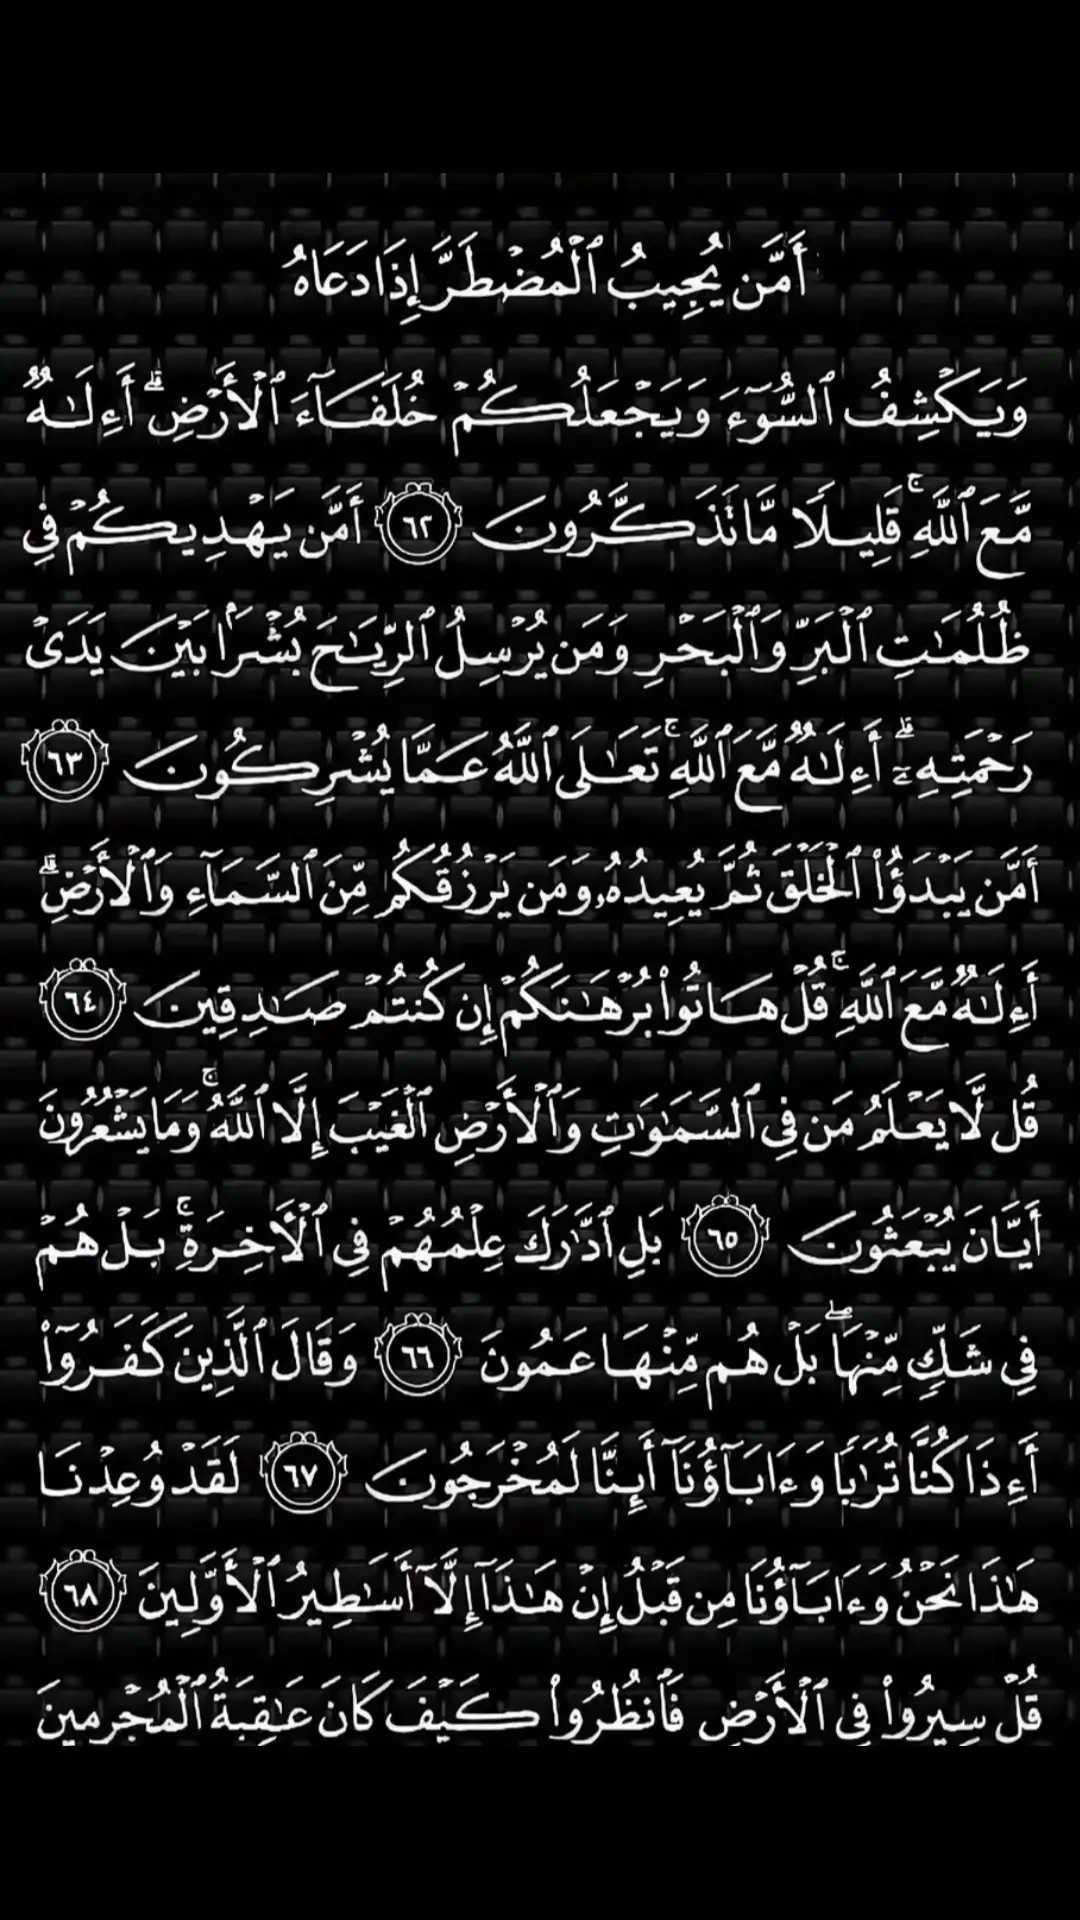 أَمَّن يُجِيبُ ٱلْمُضْطَرَّ إِذَا دَعَاهُ
وَيَكْشِفُ ٱلسُّوٓءَ وَيَجْعَلُكُمْ خُلَفَآءَ ٱلْأَرْضِ ۗ أَءِلَٰهٌ
مَّعَ ٱللَّهِ ۚ قَلِيلًا مَّا تَذَكَّرُونَ ٦٢ أَمَّن يَهْدِيكُمْ فِى
ظُلُمَٰتِ ٱلْبَرِّ وَٱلْبَحْرِ وَمَن يُرْسِلُ ٱلرِّيَٰحَ بُشْرًۢا بَيْنَ يَدَىْ
رَحْمَتِهِۦٓ ۗ أَءِلَٰهٌ مَّعَ ٱللَّهِ ۚ تَعَٰلَى ٱللَّهُ عَمَّا يُشْرِكُونَ ٦٣
أَمَّن يَبْدَؤُا۟ ٱلْخَلْقَ ثُمَّ يُعِيدُهُۥ وَمَن يَرْزُقُكُم مِّنَ ٱلسَّمَآءِ وَٱلْأَرْضِ ۗ
أَءِلَٰهٌ مَّعَ ٱللَّهِ ۚ قُلْ هَاتُوا۟ بُرْهَٰنَكُمْ إِن كُنتُمْ صَٰدِقِينَ ٦٤
قُل لَّا يَعْلَمُ مَن فِى ٱلسَّمَٰوَٰتِ وَٱلْأَرْضِ ٱلْغَيْبَ إِلَّا ٱللَّهُ ۚ وَمَا يَشْعُرُونَ
أَيَّانَ يُبْعَثُونَ ٦٥ بَلِ ٱدَّٰرَكَ عِلْمُهُمْ فِى ٱلْءَاخِرَةِ ۚ بَلْ هُمْ
فِى شَكٍّ مِّنْهَا ۖ بَلْ هُم مِّنْهَا عَمُونَ ٦٦ وَقَالَ ٱلَّذِينَ كَفَرُوٓا۟
أَءِذَا كُنَّا تُرَٰبًا وَءَابَآؤُنَآ أَئِنَّا لَمُخْرَجُونَ ٦٧ لَقَدْ وُعِدْنَا
هَٰذَا نَحْنُ وَءَابَآؤُنَا مِن قَبْلُ إِنْ هَٰذَآ إِلَّآ أَسَٰطِيرُ ٱلْأَوَّلِينَ ٦٨
قُلْ سِيرُوا۟ فِى ٱلْأَرْضِ فَٱنظُرُوا۟ كَيْفَ كَانَ عَٰقِبَةُ ٱلْمُجْرِمِينَ